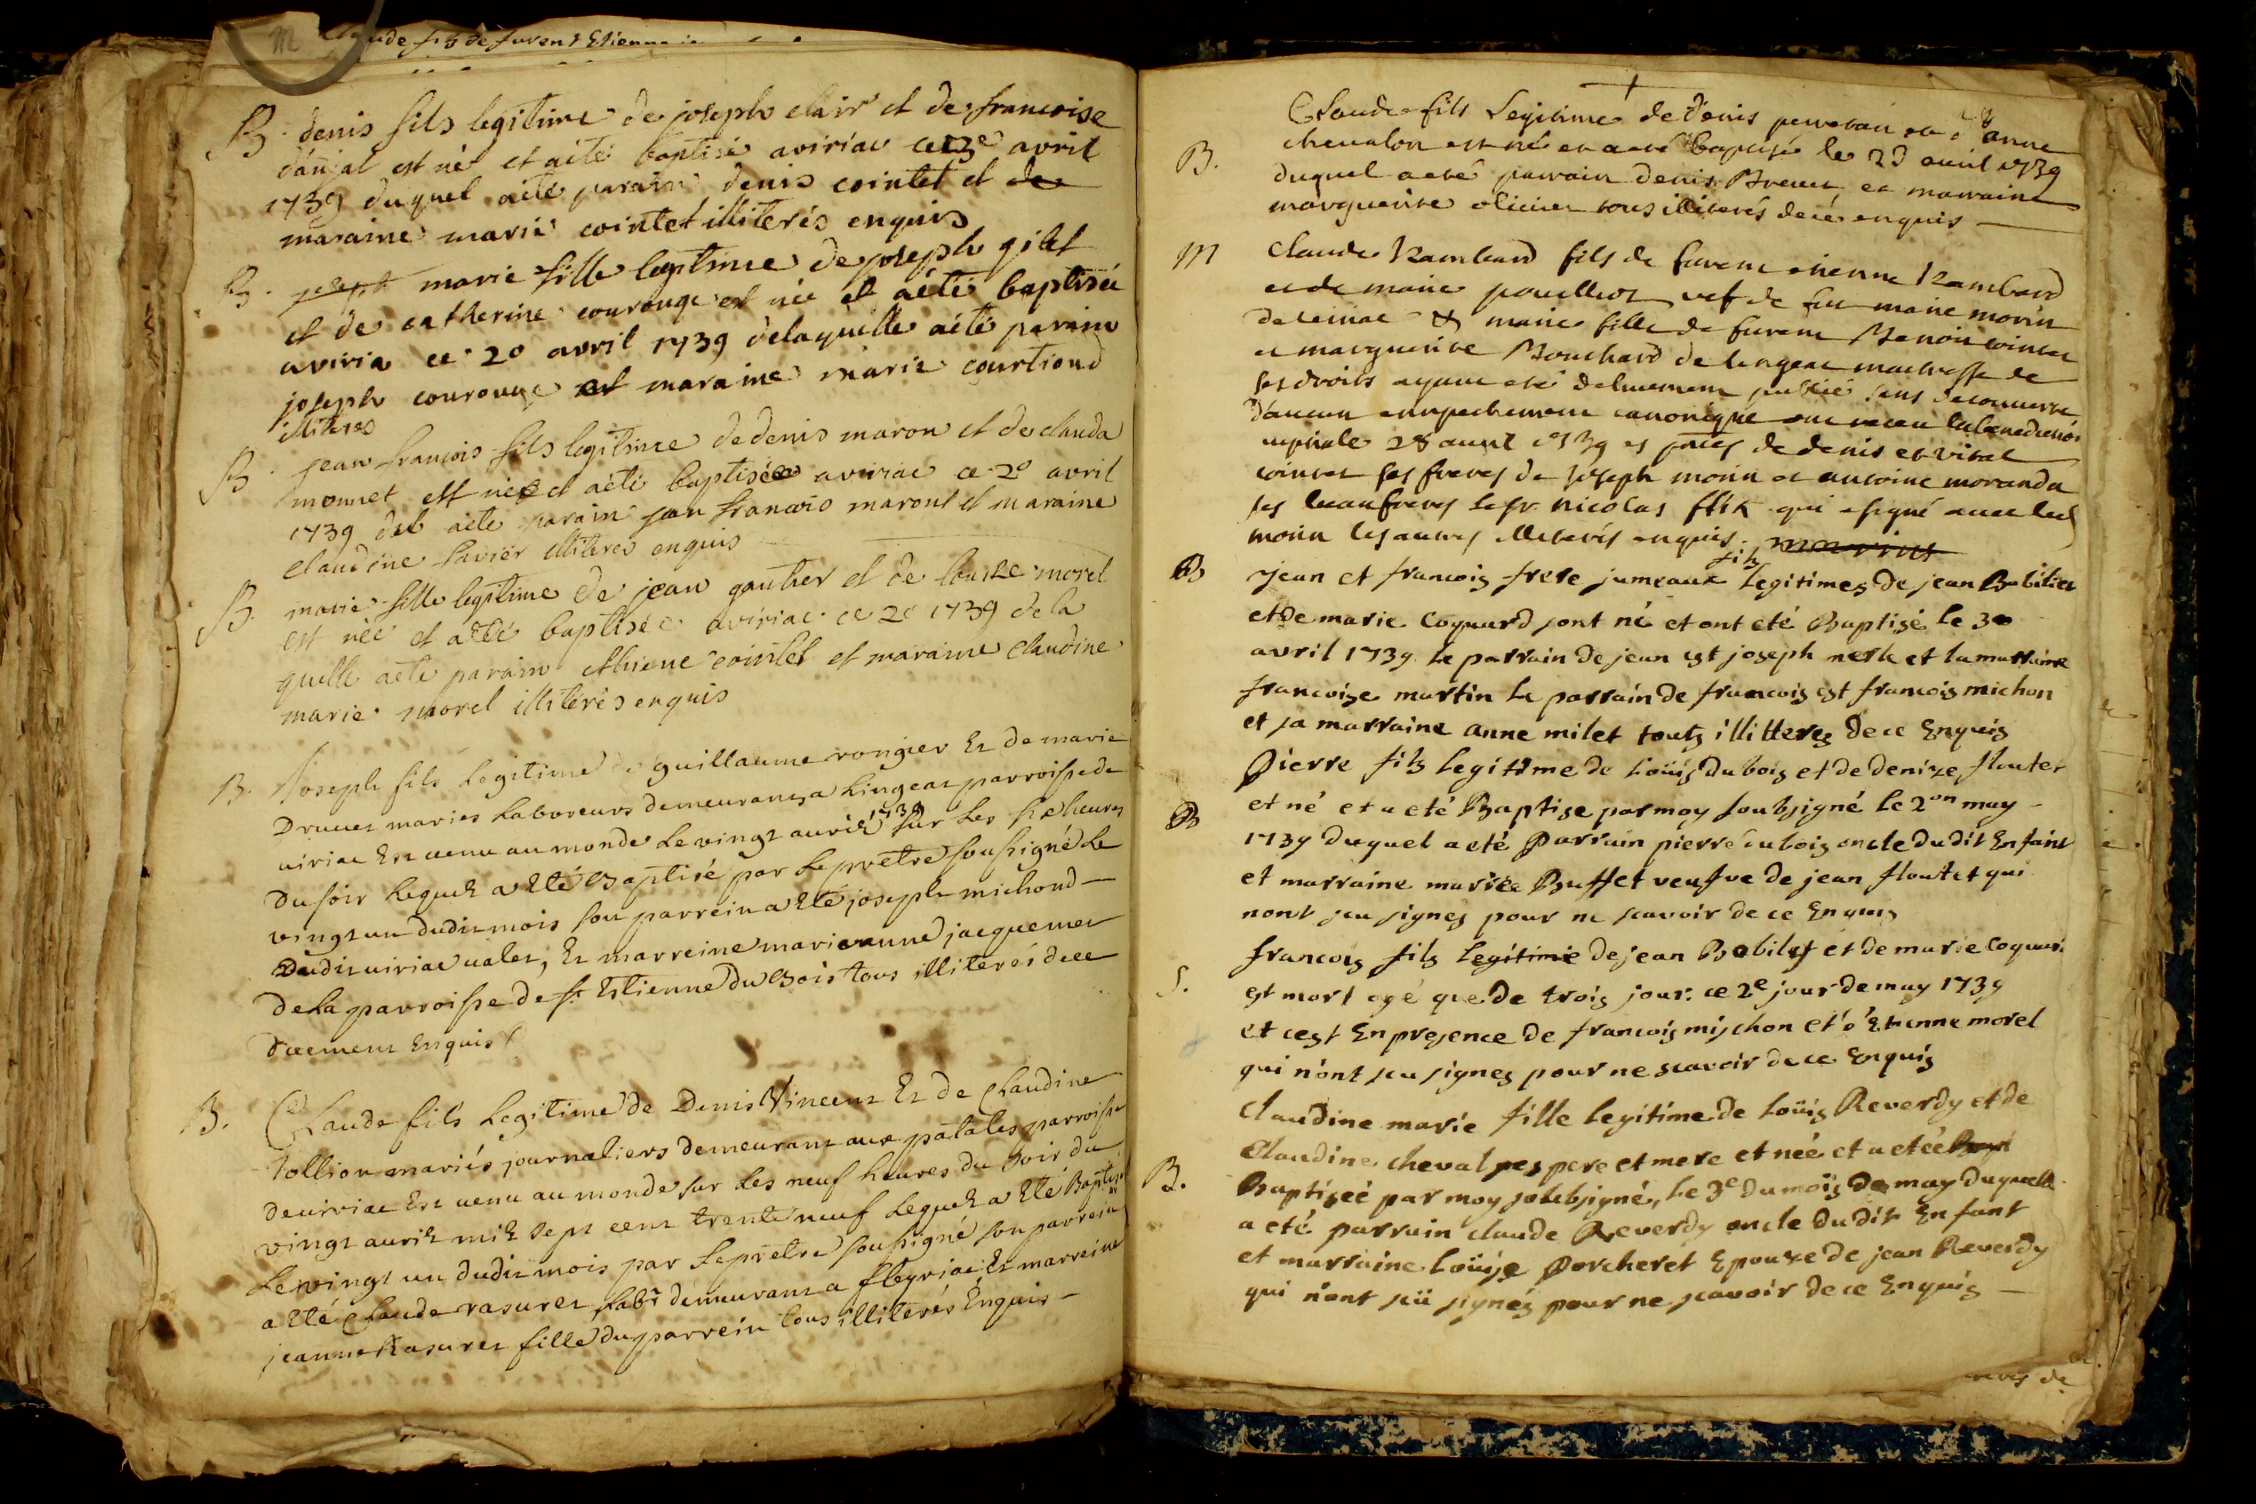 m
Claude fils de furent Etienne
B. denis fils legitime de joseph clair et de francoise
danjat est né et aété baptisé aviriac ce 13e avril
1739 duquel aété parain denis cointet et de
maraine marie cointet illiterés enquis
B. joseph marie fille legitime de joseph gilet
et de catherine courouge est née et aété baptisée
aviria ce 20 avril 1739 delaquelle aété parain
joseph courouge et maraine marie courtiond
illiteres
B. jean francois fils legitime de denis maron et de clauda
monnet est née et aété baptisée aviriac ce 20 avril
1739 del aété parain jean francois maront et maraine
claudine illiteres enquis
B. marie fille legitime de jean gautier et de louize morel
est née et aété baptisée aviriac ce 20 1739 de la
quelle aété parain ethiene cointet et maraine claudine
marie morel illiterés enquis
B. Joseph fils Legitime de guillaume rongier Et de marie
Druuet mariés Laboreurs demeurants a Lingeat parroisse de
viriac Est venu au monde Le vingt auril 1739 sur Les six heures
Du soir Lequel a Eté Baptisé par Le prêtre soussigné Le
vingt un dudit mois son parrein a Eté joseph michoud
Dudit viriac valet, Et marreine marieanne jacquemet
De La parroisse de st Estienne Du Bois tous illiterés de ce
Duement Enquis
B. Claude fils Legitime de Denis Vincent Et de Claudine
Tollion mariés journaliers demeurant aux palales parroisse
De viriac Est venu au monde sur Les neuf heures du soir du
vingt auril mil sept cent trente neuf Lequel a Eté Baptisé
Le vingt un dudit mois par Le prêtre soussigné son parrein
a Eté Claude rasurel Labr demeurant a fleyriac Et marreine
jeanne Rasurel fille du parrein tous illiterés Enquis
Claude fils Legitime de denis perretan et d'anne
B. cheualon est né et a eté baptisé le 23 auril 1739
duquel a eté parrain denis Breuet et marraine
marguerite olieier tous illiterés de cé enquis
M Claude Rambard fils de furent etienne Rambard
et de marie pouilliot vef de feu marie morin
de ternac & marie fille de furent Benoit cointet
et marguerite Bouchard de lingeat maitresse de
ses droits ayant eté deluement publié sans decouverte
d'aucun empechement canonique ont receu la benediction
nuptiale 28 auril 1739 es pnces de denis et vital
cointet ses freres de joseph morin et antoine morandu
ses beaufreres le sr nicolas qui a signé avec led
morin les autres illiterés enquis. morins
B jean et francois frere jumeaux fils Legitimes de jean Bobilier
et de marie Coquard sont né et ont eté Baptisé le 30
avril 1739. Le parrain de jean est joseph nerle et la marraine
francoise martin Le parrain de francois est francois michon
et sa marraine anne milet touts illitteres de ce Enquis
Pierre fils Legitime de Loüis du bois et de denize floutet
B et né et a eté Baptise par moy soubsigné le 2on may
1739 duquel a eté Parrain pierre dubois oncle du dit Enfant
et marraine mariee Buffet veufve de jean floutet qui
nont seu signes pour ne scavoir de ce Enquis
francois fils Legitimie de jean Bobilet et de marie Coquar
S. est mort agé que de trois jour. ce 2e jour de may 1739
et cest En presence de francois mischon et d'Etienne morel
qui n'ont seu signes pour ne scavoir de ce Enquis
Claudine marie fille legitime de loüis Reverdy et de
Claudine cheval ses pere et mere et née et a etée
B. Baptiseé par moy solebsigné, le 3e du mois de may duquelle
a eté parrain claude Reverdy oncle du dit Enfant
et marraine Loüise Porcheret Epouze de jean Reverdy
qui n'ont sçü signés pour ne scavoir de ce Enquis